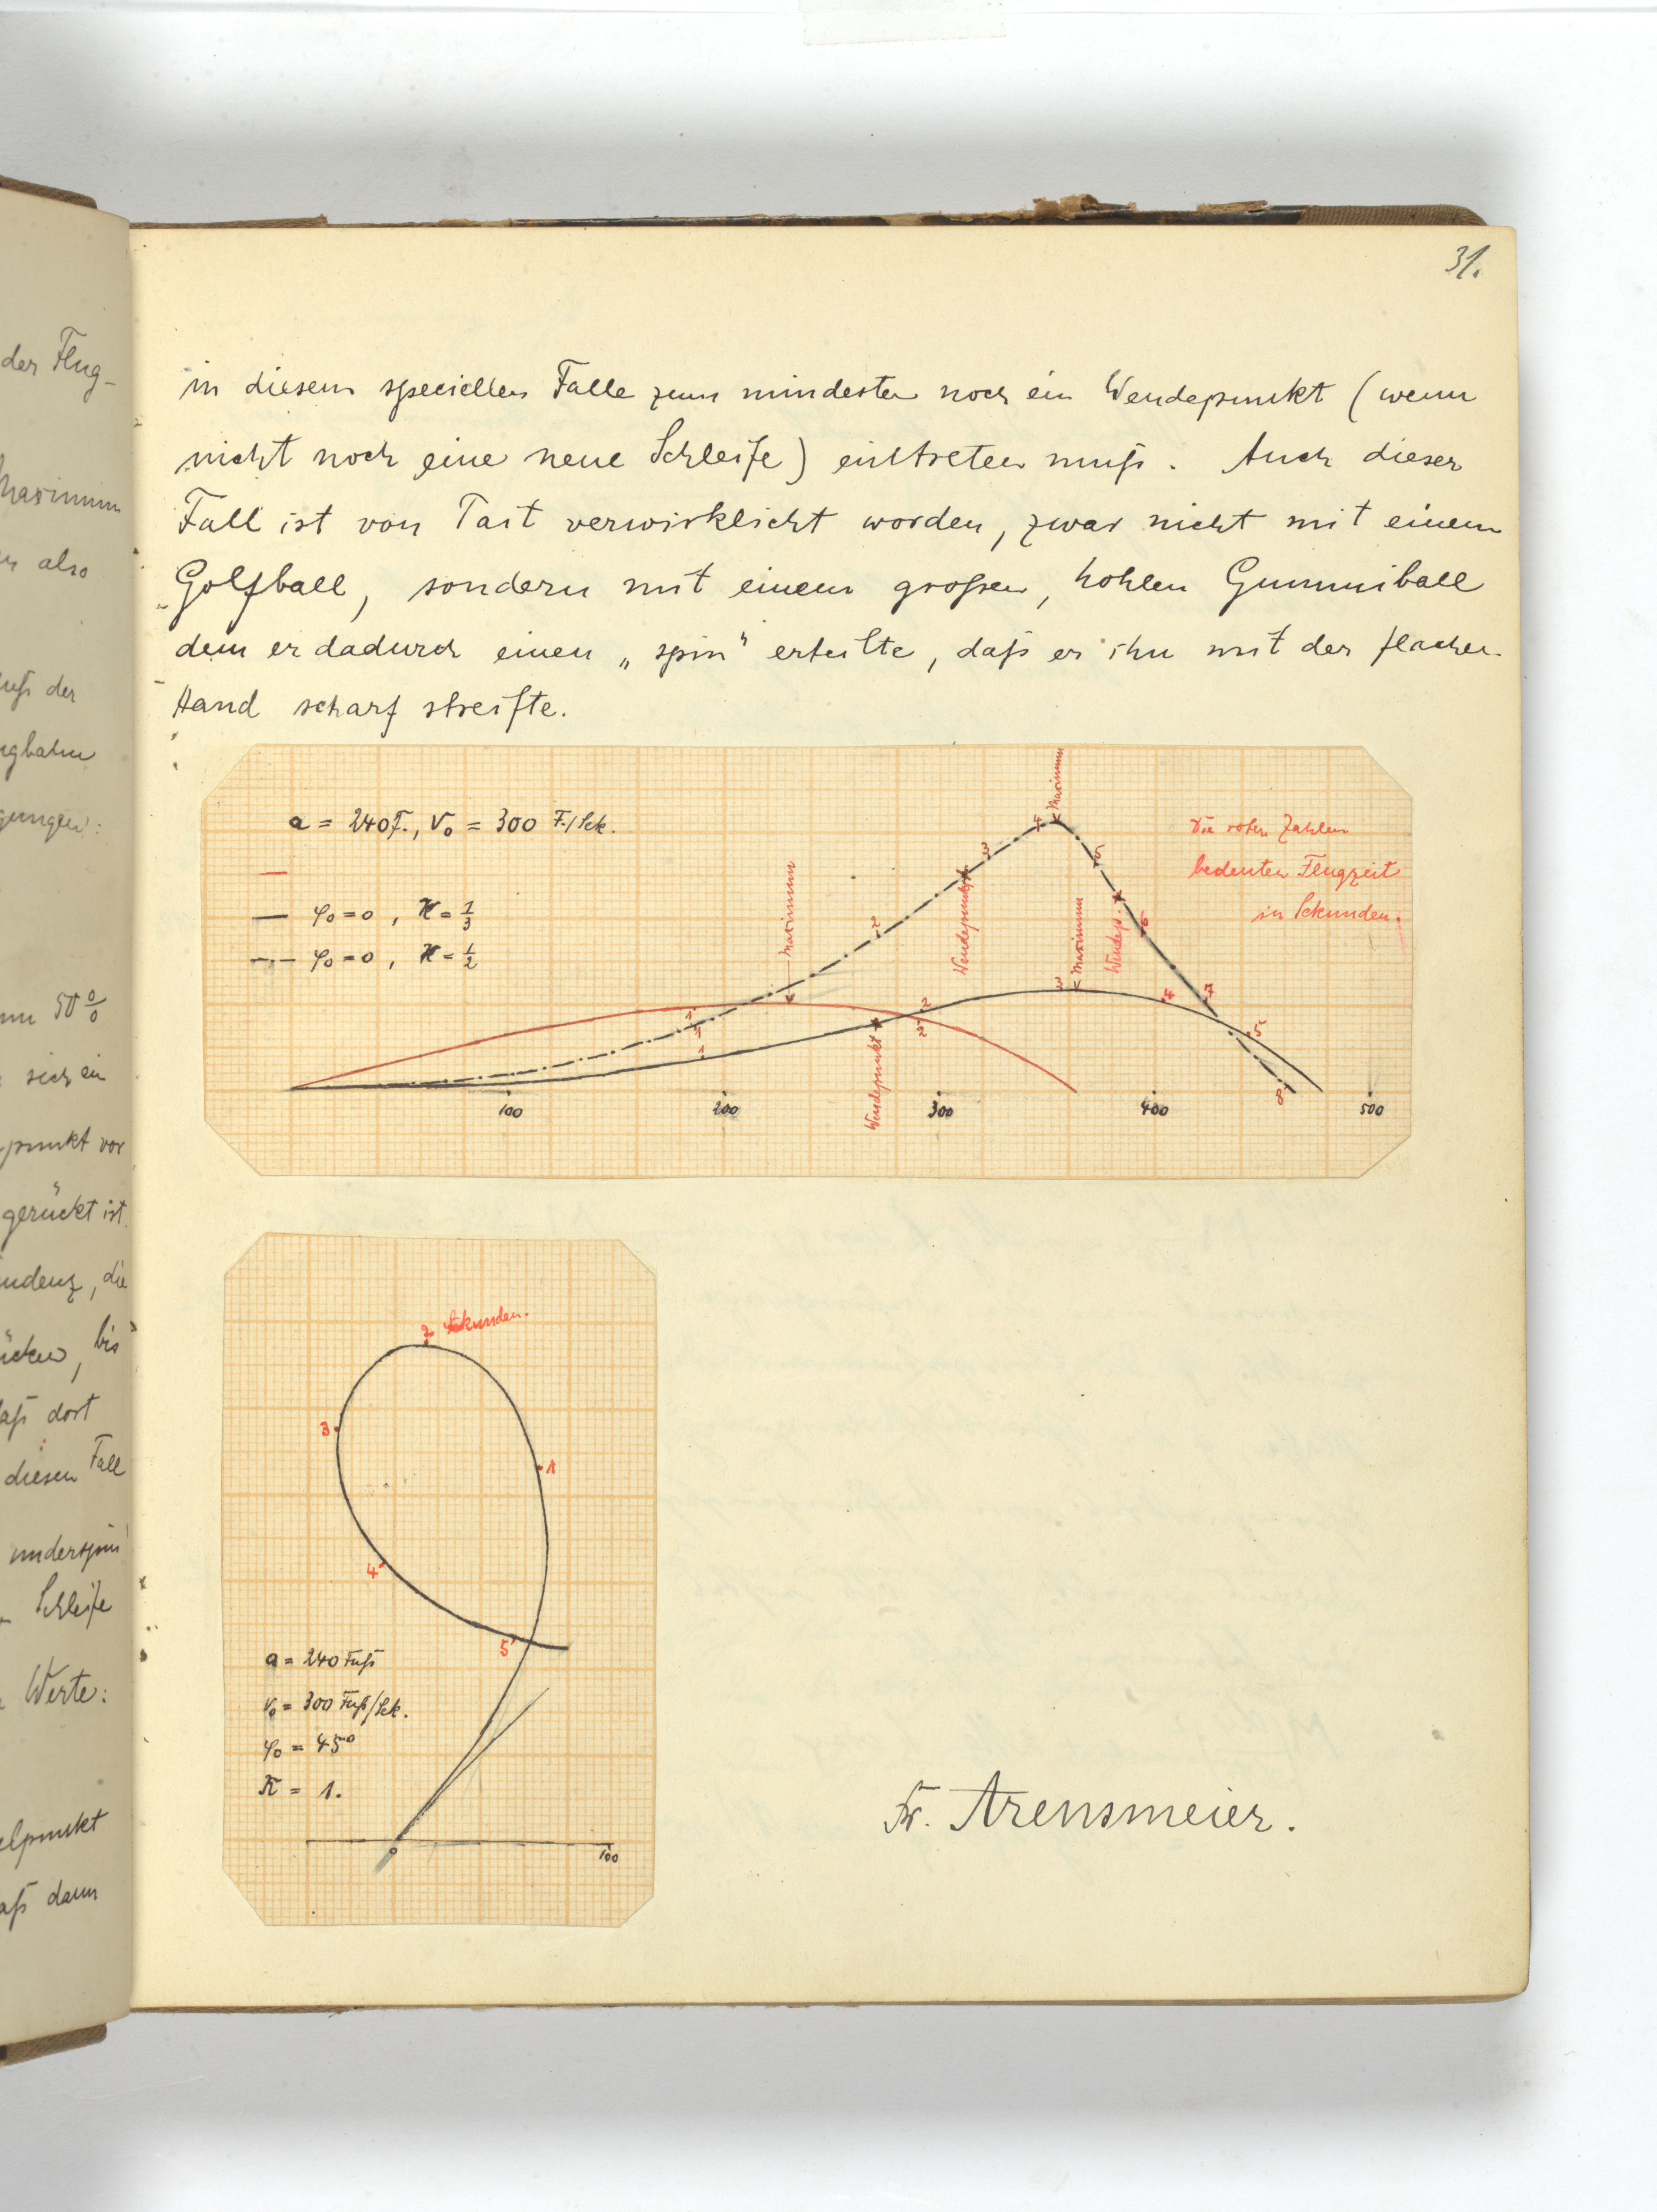 der Flug-
Maximum
also
der
gerückt ist
die
bis
dort
diesen Fall
underspin
Schleife
Werte:
dann
31.
in diesem speciellen Falle zum mindesten noch ein Wendepunkt (wenn
nicht noch eine neue Schleife) eintreten muß. Auch dieser
Fall ist von Tait verwirklicht worden, zwar nicht mit einem
Golfball, sondern mit einem großen, hohlen Gummiball
dem er dadurch einen „spin" erteilte, daß er ihn mit der flachen
Hand scharf streifte.
a = 240 F., v₀ = 300 F./Sek.
— φ₀ = 0, ϰ = 1/3
—·— φ₀ = 0, ϰ = 1/2
Die roten Zahlen
bedeuten Flugzeit
in Sekunden.
Maximum
Maximum
Maximum
Wendepunkt
Wendepunkt
Wendep.
1 2
1 2 3 4 5 6 7 8
1 2 3 4 5
100 200 300 400 500
2 Sekunden.
3
1
4
5
a = 240 Fuß
v₀ = 300 Fuß/Sek.
φ₀ = 45°
ϰ = 1.
0 100
Fr. Arensmeier.